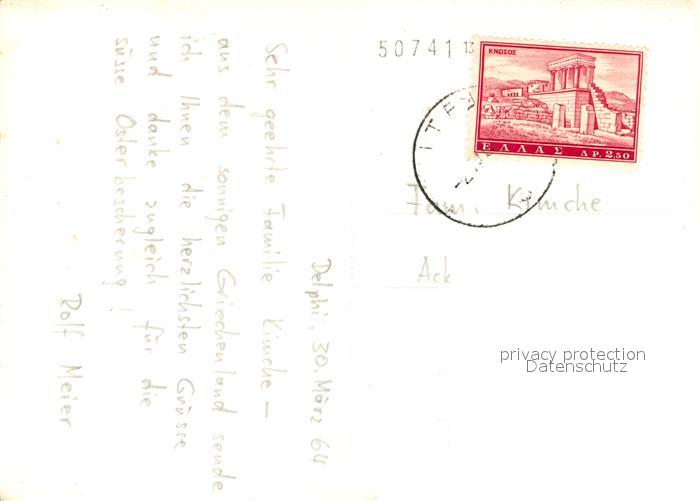 Delphi, 30. März 64
Sehr geehrte Familie Kimche –
aus dem sonnigen Griechenland sende
ich Ihnen die herzlichsten Grüsse
und danke zugleich für die
süsse Osterbescherung!
Rolf Meier
50741 13
ΚΝΩΣΟΣ
ΕΛΛΑΣ ΔΡ. 2.50
ΙΤΕΑ
Fam. Kimche
Ack
privacy protection
Datenschutz